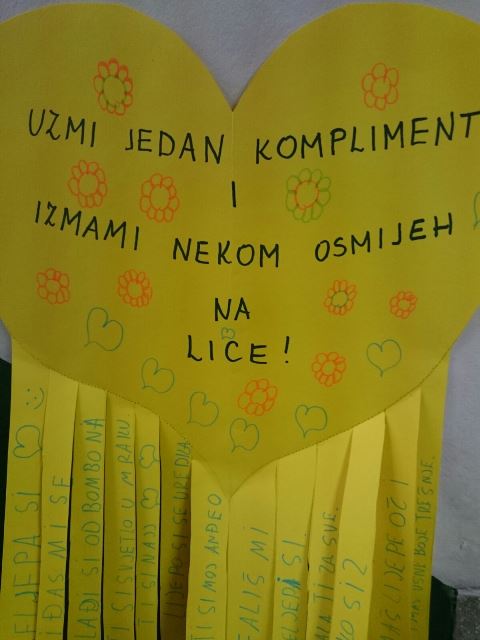 UZMI JEDAN KOMPLIMENT
I
IZMAMI NEKOM OSMIJEH
NA
LICE!
LIJEPA SI
SVIĐAŠ MI SE
SLAĐI SI OD BOMBONA
TI SI SVJETLO U MRAKU
TI SI NAJ
LIJEPO SI SE UREDILA
TI SI MOJ ANĐEO
FALIŠ MI
LIJEPA SI.
ZA SVE.
IMAŠ LIJEPE OČI
IMAŠ USNE BOJE TREŠNJE.